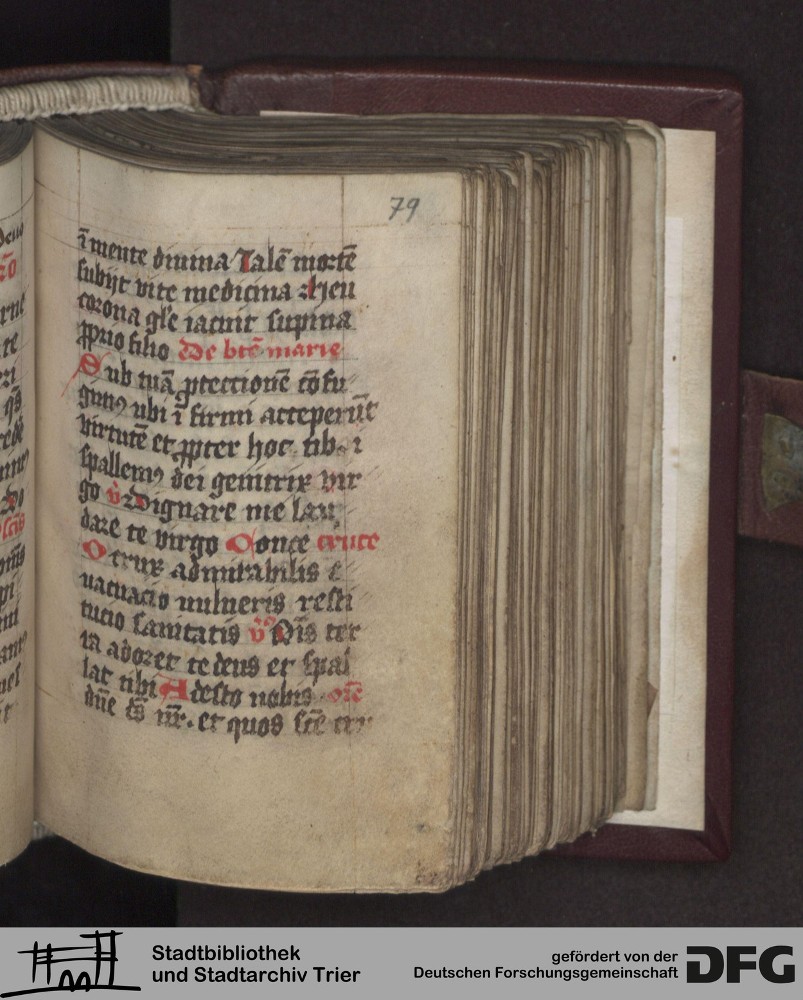 79
ī mente diuina Talē mortē
subijt vite medicina Heu
corona gl̄e iacuit supina
ꝓprio filio De btē marie
Sub tuā ꝓtectionē cōfu
gim⁹ ubi īfirmi acceperūt
virtutē et ꝓpter hoc tibi
spallem⁹ dei genitrix vir
go v̄ Dignare me lau
dare te virgo De cruce
O crux admirabilis e
uacuacio uulneris resti
tucio sanitatis v̄ Oīs ter
ra adoret te deus et spal
lat tibi Adesto nobis orō
dn̄e ds̄ nr̄. et quos scē cru
Stadtbibliothek
und Stadtarchiv Trier
gefördert von der
Deutschen Forschungsgemeinschaft
DFG